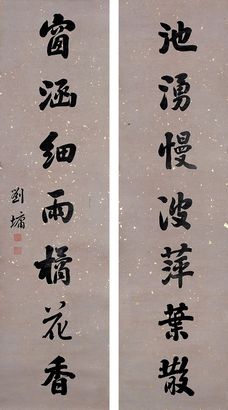 池湧慢波萍葉散
窗涵細雨橘花香
劉墉